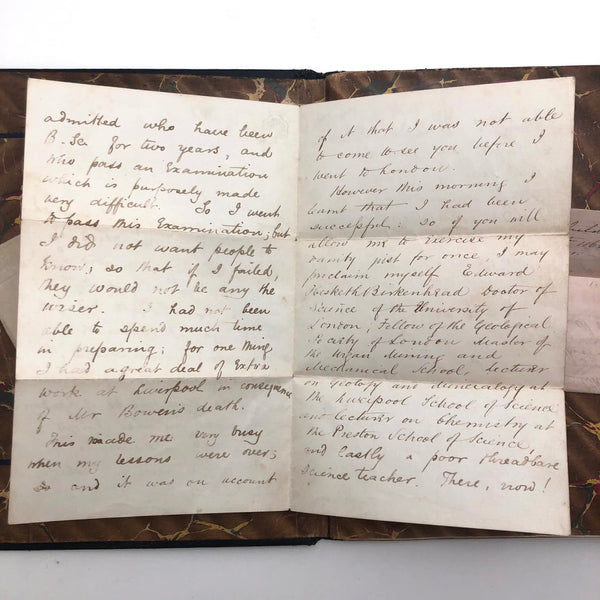 admitted who have been
B. Sc. for two years, and
who pass an Examination
which is purposely made
very difficult. So I went
to pass this Examination; but
I did not want people to
know; so that if I failed,
they would not be any the
wiser. I had not been
able to spend much time
in preparing; for one thing
I had a great deal of Extra
work at Liverpool in consequence
of Mr Bowen's death.
This made me very busy
when my lessons were over;
so and it was on account
of it that I was not able
to come to see you before I
went to London.
However this morning I
learnt that I had been
successful: so if you will
allow me to exercise my
vanity just for once, I may
proclaim myself Edward
Hesketh Birkenhead Doctor of
Science of the University of
London; Fellow of the Geological
Society of London Master of
the Wigan Mining and
Mechanical School, Lecturer
on Geology and Mineralogy at
the Liverpool School of Science
and Lecturer on Chemistry at
the Preston School of Science
and lastly a poor threadbare
science teacher. There, now!